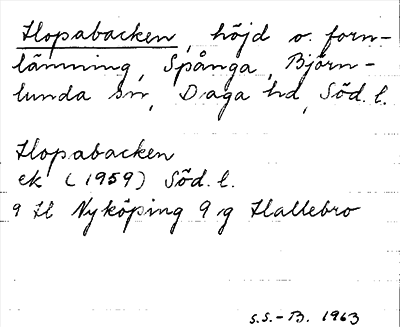 Hopabacken, höjd o. forn-
lämning, Spånga, Björn-
lunda sn, Daga hd, Söd. l.
Hopabacken
ek (1959) Söd. l.
9 H Nyköping 9 g Hallebro
S.S.-B. 1963